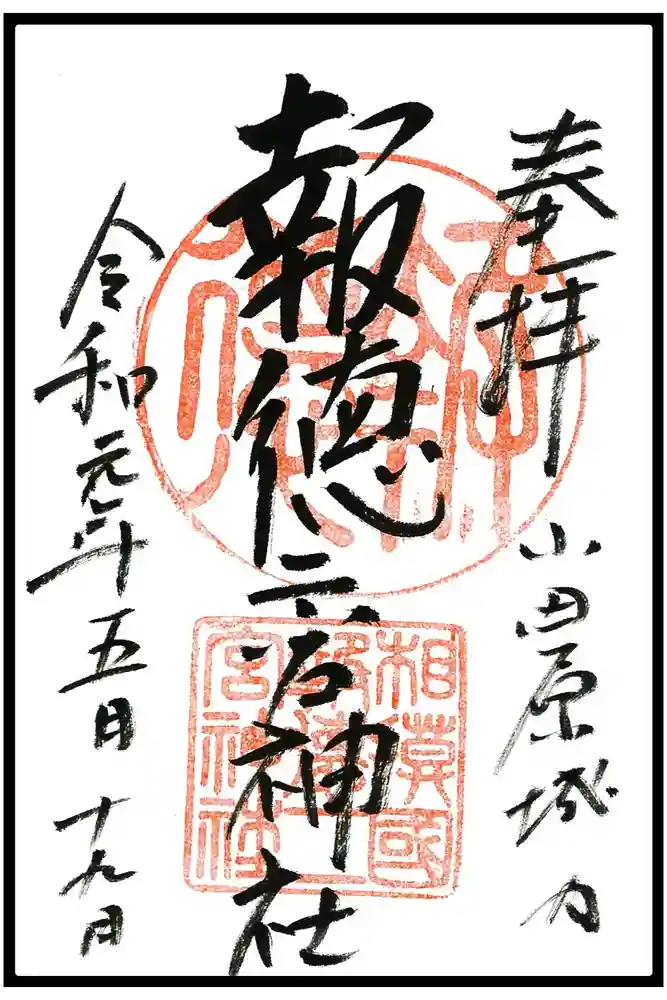 奉拝 小田原城内
報徳二宮神社
令和元年五月十九日
相模國
報徳二
宮神社